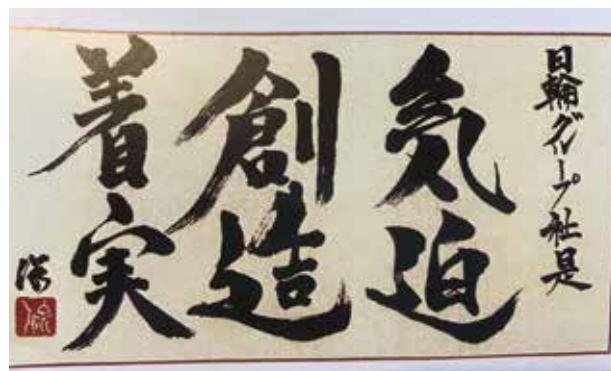 日輪グループ社是
気迫
創造
着実